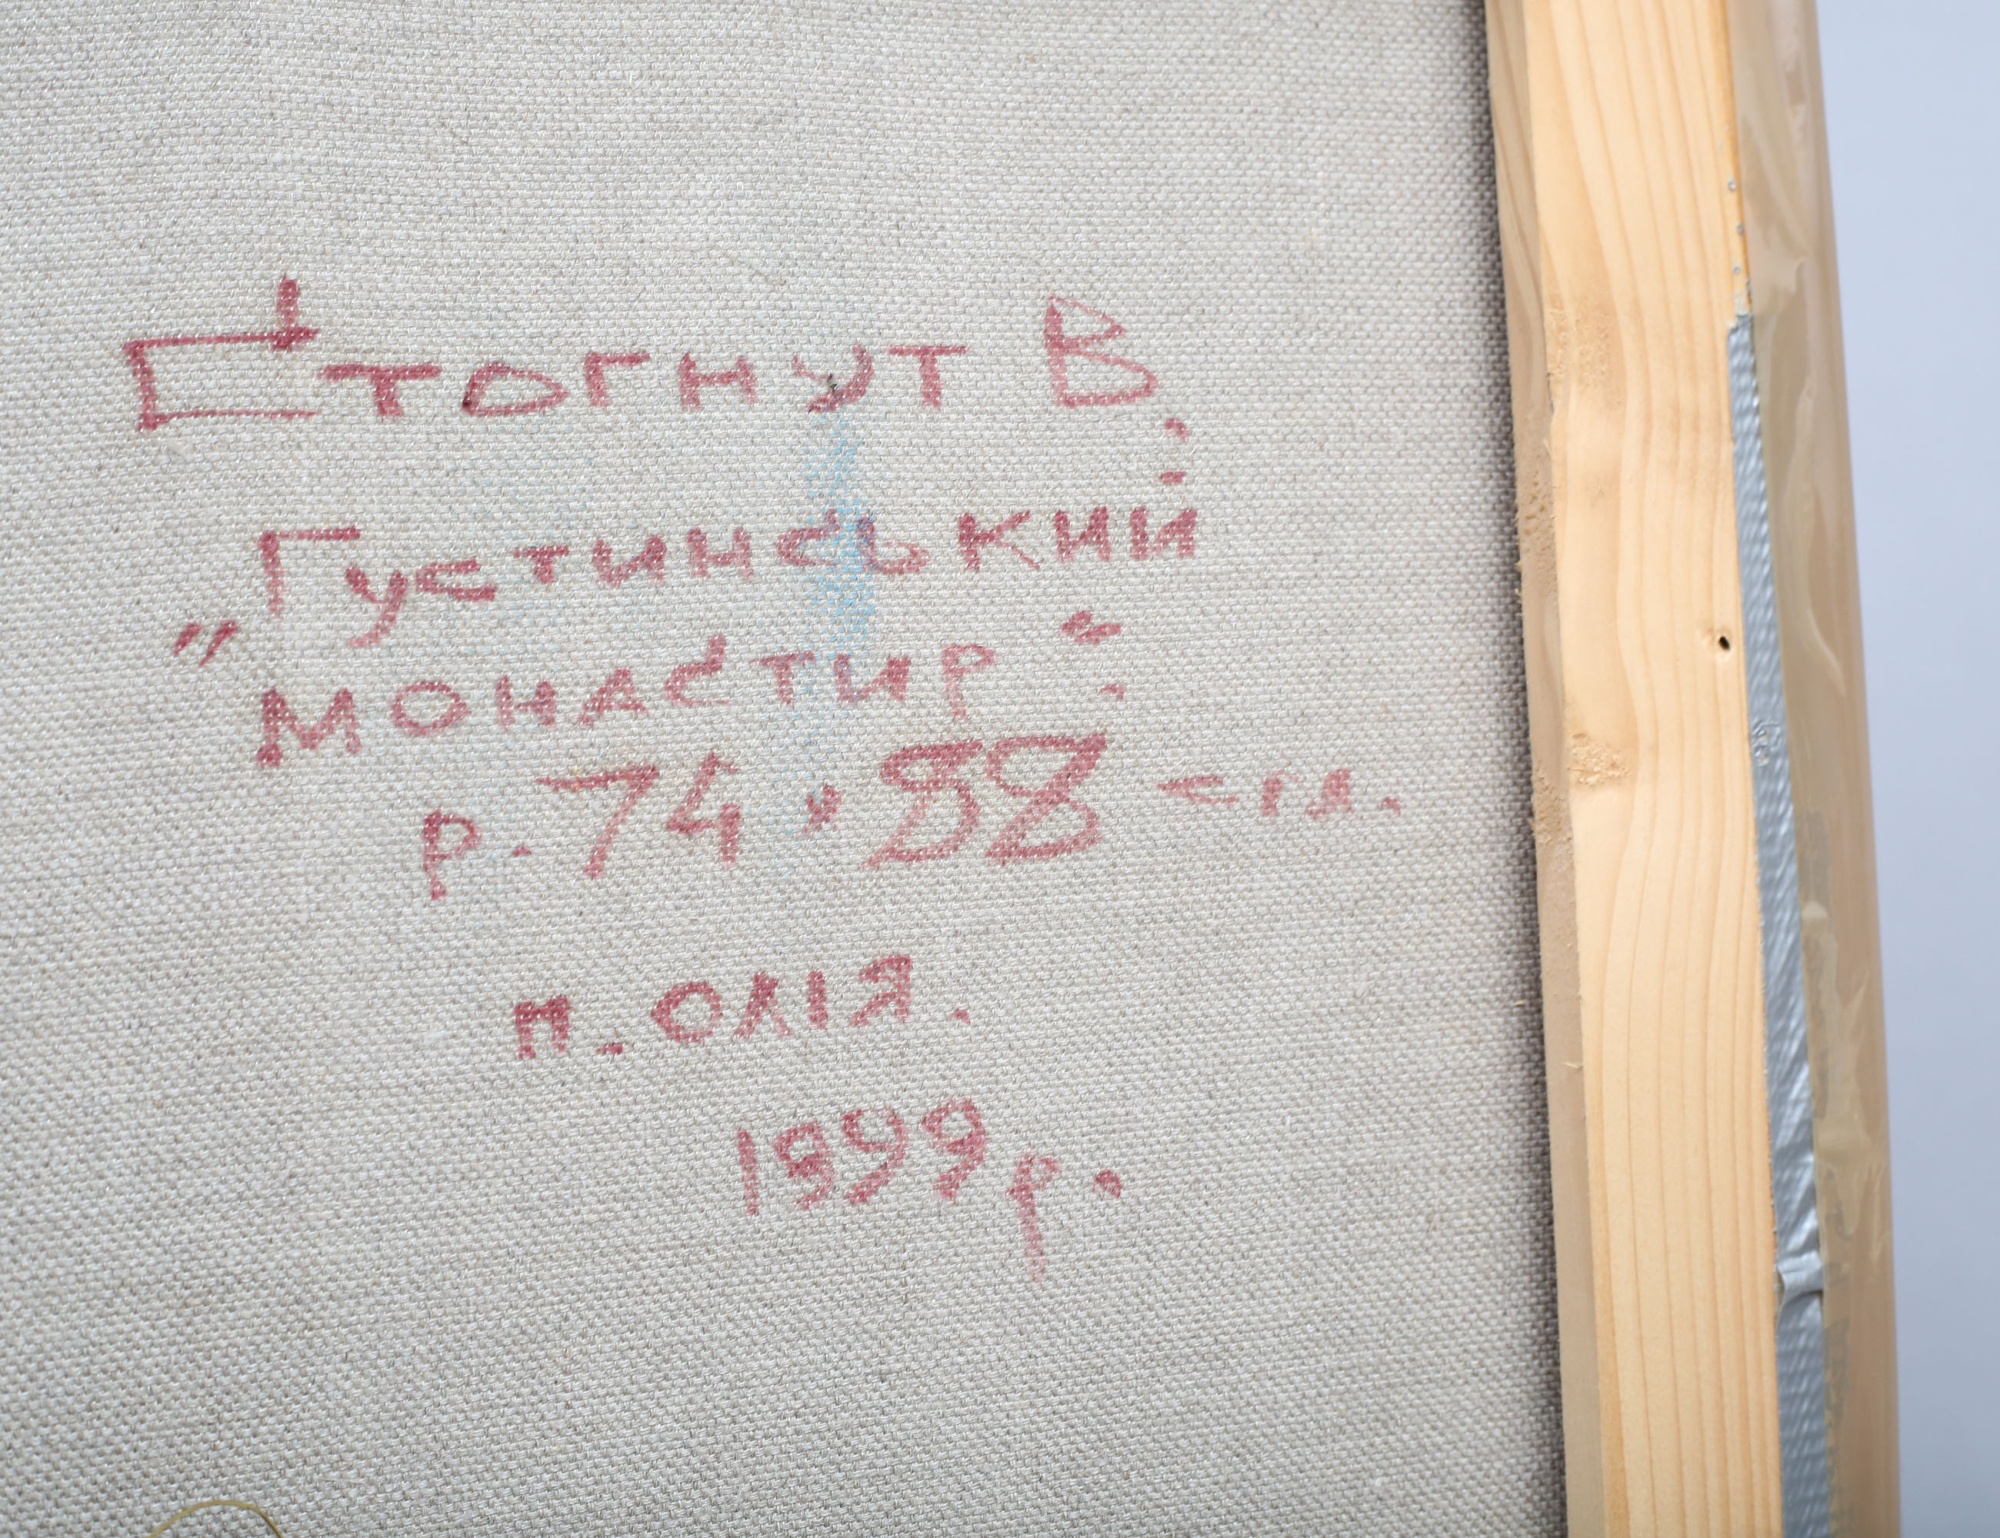 Стогнут В.
„Густинський
монастир".
р. 74 × 88 - гя.
п. олія.
1999 р.